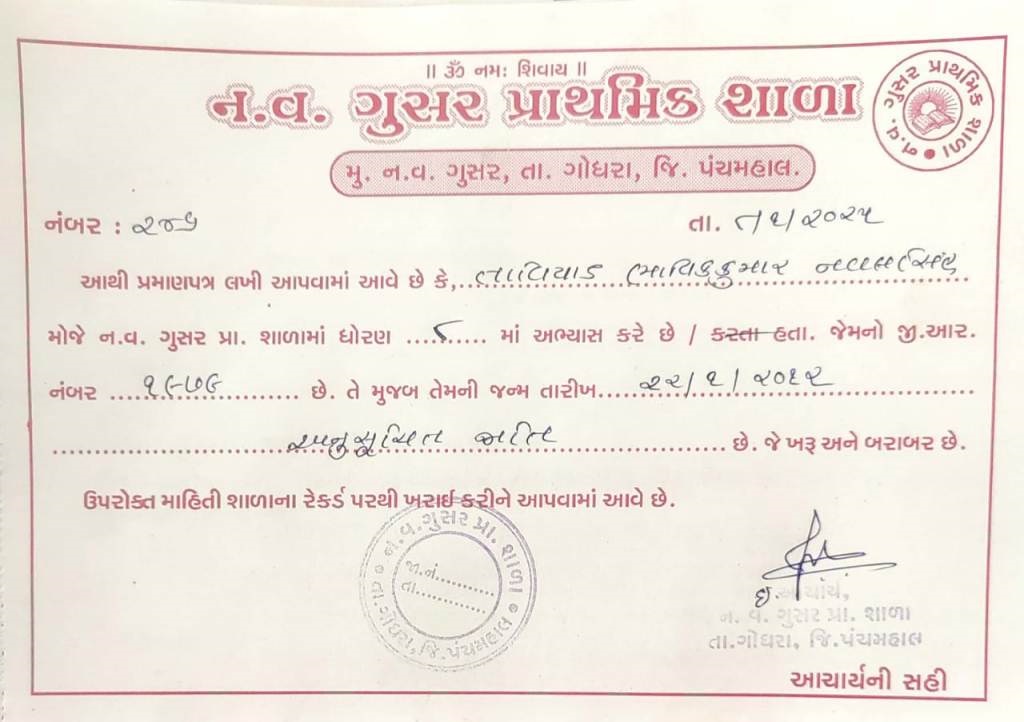 ॥ ૐ નમઃ શિવાય ॥
ન.વ. ગુસર પ્રાથમિક શાળા
ન.વ. ગુસર પ્રાથમિક શાળા
મુ. ન.વ. ગુસર, તા. ગોધરા, જિ. પંચમહાલ.
નંબર : ૨૪૭ તા. ૨૦૨૫
આથી પ્રમાણપત્ર લખી આપવામાં આવે છે કે, ભાવિકકુમાર
મોજે ન.વ. ગુસર પ્રા. શાળામાં ધોરણ ૮ માં અભ્યાસ કરે છે / કરતા હતા. જેમનો જી.આર.
નંબર ૧૯૭૯ છે. તે મુજબ તેમની જન્મ તારીખ ૨૨/૧/૨૦૧૨
અનુસૂચિત જાતિ છે. જે ખરૂ અને બરાબર છે.
ઉપરોક્ત માહિતી શાળાના રેકર્ડ પરથી ખરાઇ કરીને આપવામાં આવે છે.
ન.વ.ગુસર પ્રા. શાળા
જા.નં...........
તા.............
તા.ગોધરા, જિ.પંચમહાલ
ઇ.આચાર્ય,
ન. વ. ગુસર પ્રા. શાળા
તા.ગોધરા, જિ.પંચમહાલ
આચાર્યની સહી